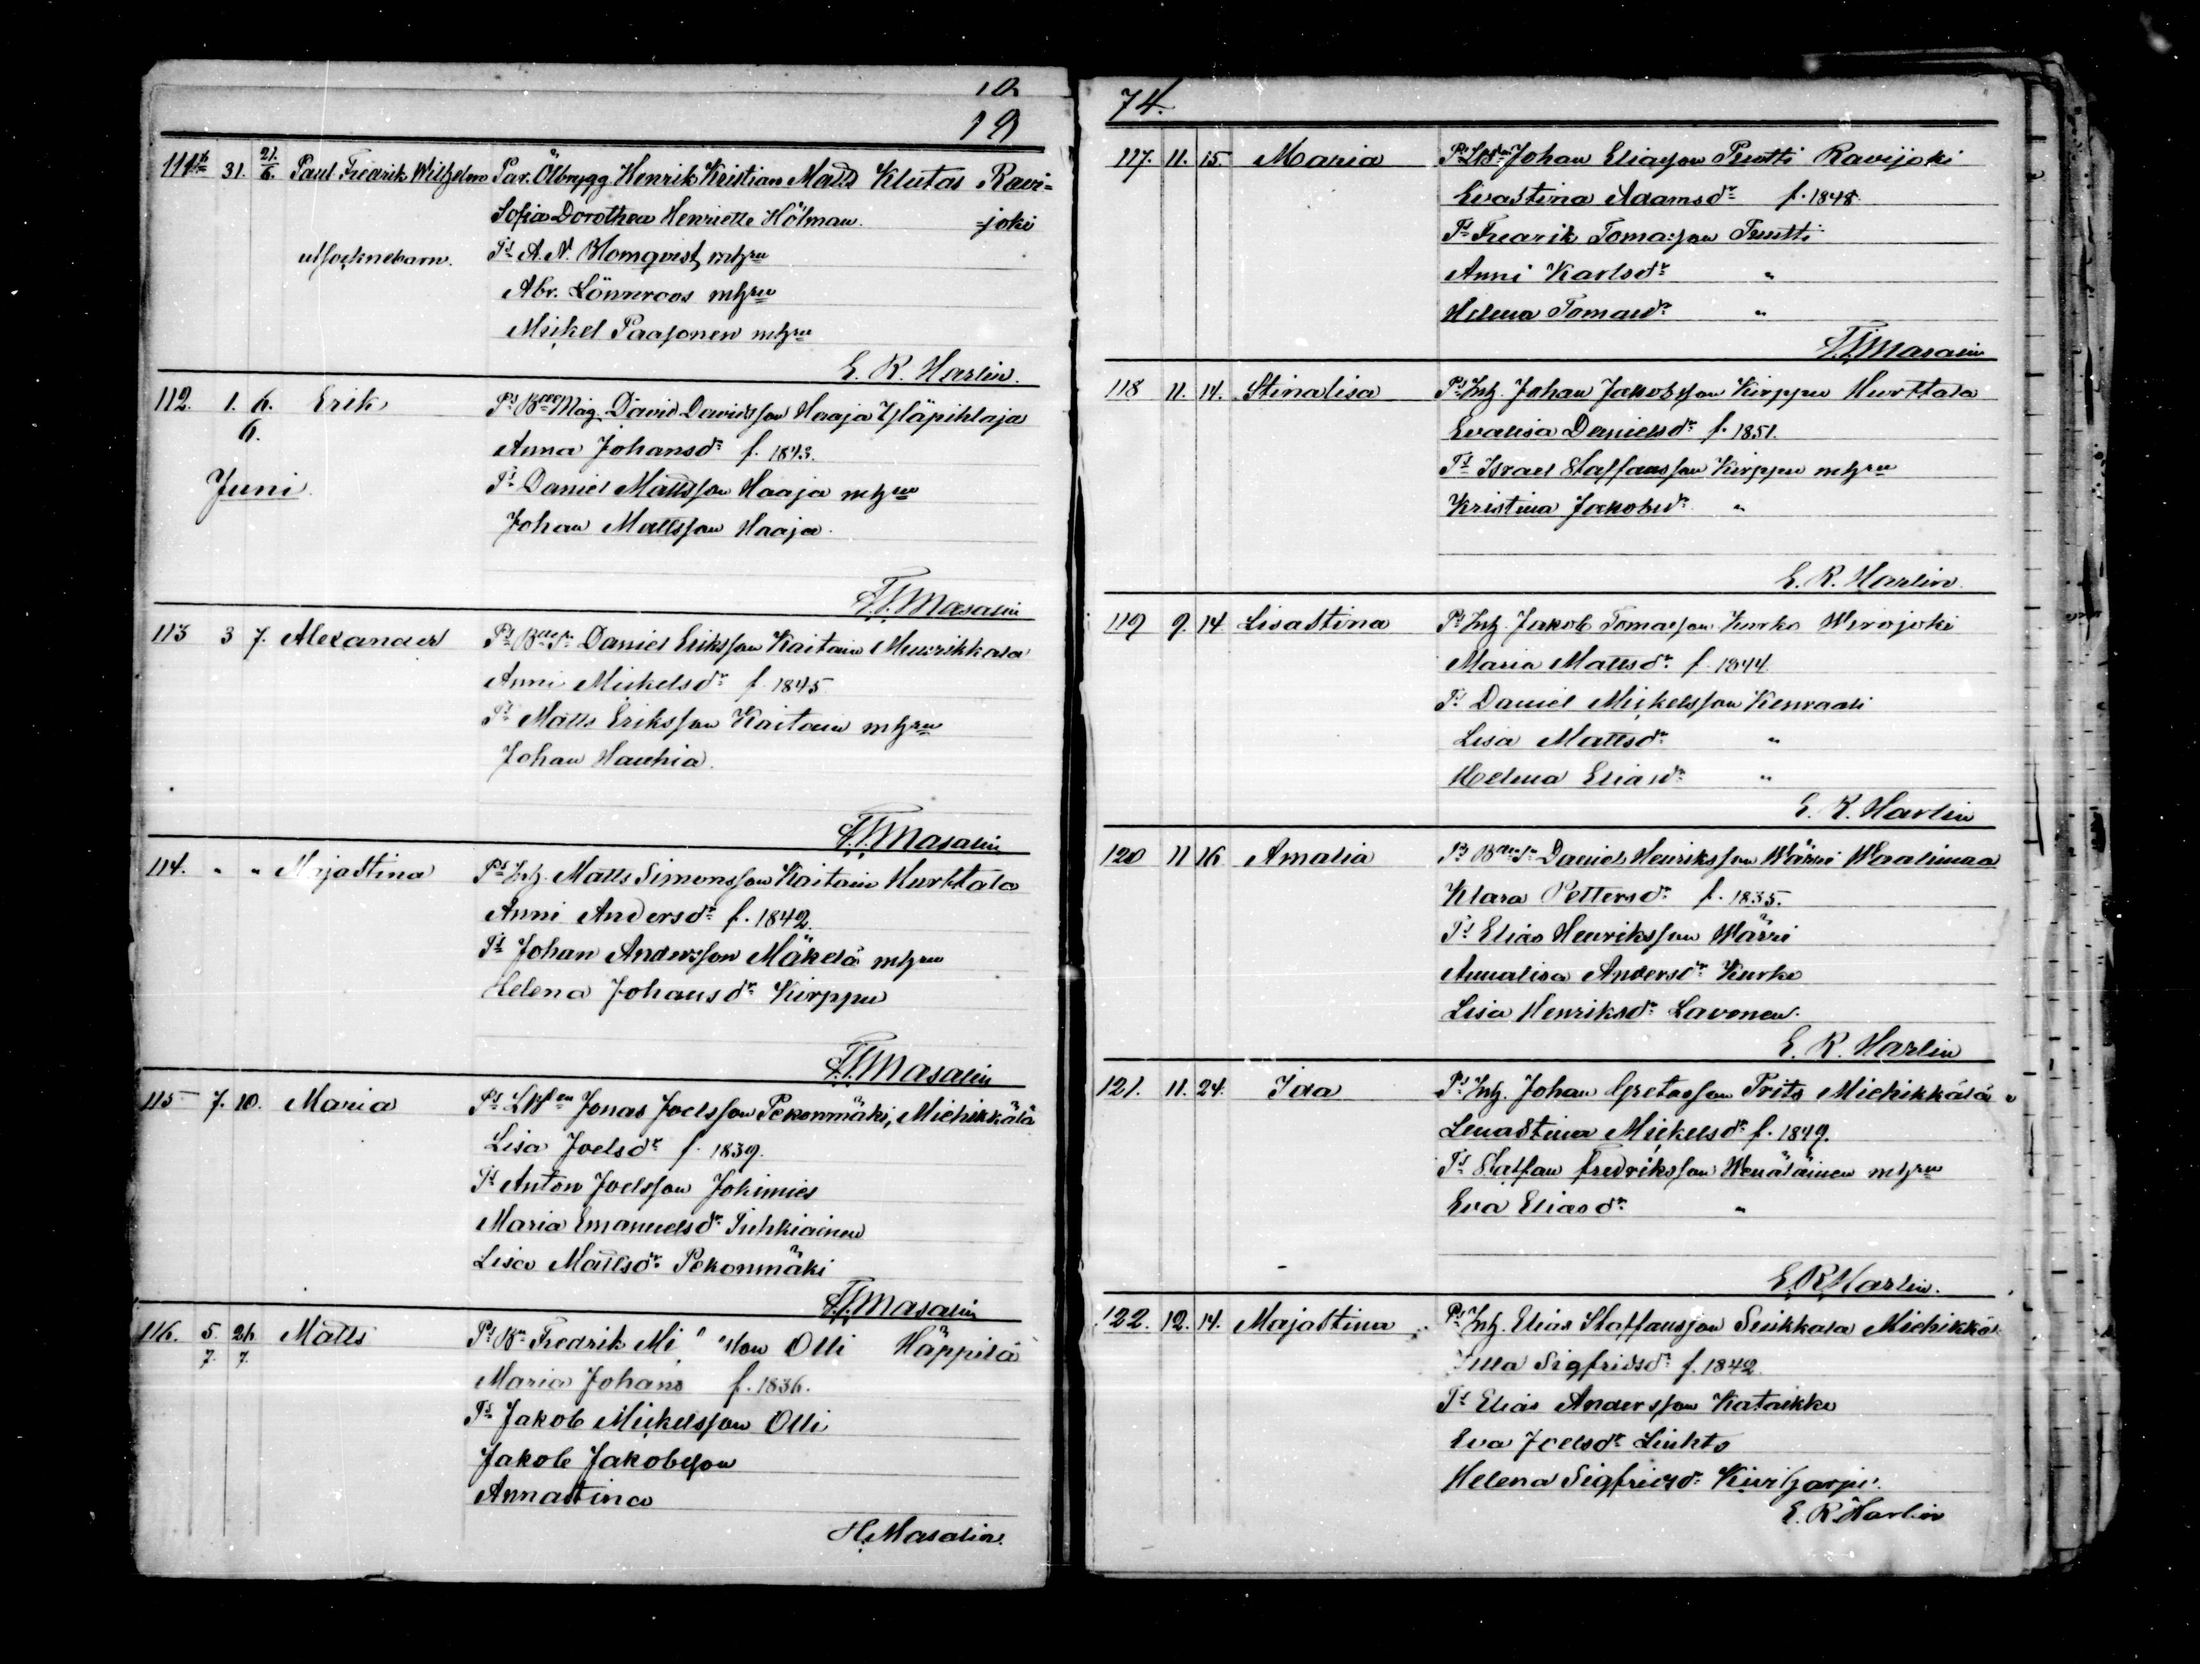 10.
19
111 31. 21/6. Paul Fredrik Wilhelm Par. Ölbrygg. Henrik Kristian Matts Klutas Ravi=
Sofia Dorothea Henriette Hölman. =joki
utsocknebarn. Ts A. N. Blomqvist, mhru
Abr. Lönnroos mhru
Mickel Paasonen mhru
E. R. Harlin.
112. 1. 6. Erik Ps David Davidsson Haaja Yläpihlaja
6. Anna Johansdr f. 1843.
Juni. Ts Daniel Mattsson Haaja mhru
Johan Mattsson Haaja.
Masalin
113 3 7. Alexander Ps Daniel Eriksson Kaitain Muurikkala
Anni Mickelsdr f. 1845
Ts Matts Eriksson Kaitain mhru
Johan Hauhia.
Masalin
114. " " Majastina Ps Inh. Matts Simonsson Kaitain Hurttala
Anni Andersdr f. 1842.
Ts Johan Andersson Mäkelä mhru
Helena Johansdr Kirppu
Masalin
115 7. 10. Maria Ps Jonas Joelsson Pekonmäki, Miehikkälä
Lisa Joelsdr f. 1839.
Ts Anton Joelsson Jokimies
Maria Emanuelsdr Tuhkiainen
Lisa Mattsdr Pekonmäki
Masalin
116. 5. 26 Matts Ps Bn Fredrik Mi son Olli Häppilä
7. 7. Maria Johans f. 1836.
Ts Jakob Mickelsson Olli
Jakob Jakobsson
Annastina
H. Masalin.
74.
117. 11. 15. Maria Ps Johan Eliasson Puutti Ravijoki
Evastina Adamsdr f. 1848.
Ts Fredrik Tomasson Puutti
Anni Karlsdr "
Helena Tomasdr "
Masalin
118 11. 14. Stinalisa Ps Inh. Johan Jakobsson Kirppu Hurttala
Evalisa Danielsdr f. 1851.
Ts Israel Staffansson Kirppu mhru
Kristina Jakobsdr "
E. R. Harlin
119 9. 14. Lisastina Ps Inh. Jakob Tomasson Kurko Wirojoki
Maria Mattsdr f. 1844
Ts Daniel Mickelsson Kenraali
Lisa Mattsdr "
Helena Eliasdr "
E. R. Harlin
120 11 16 Amalia Ps Daniel Henriksson Wärri Waalimaa
Klara Pettersdr f. 1835.
Ts Elias Henriksson Wärri
Annalisa Andersdr Kurko
Lisa Henriksdr Lavonen.
E. R. Harlin
121. 11. 24. Ida Ps Inh. Johan Gretasson Prits Miehikkälä
Lenastina Mickelsdr f. 1849.
Ts Staffan Fredriksson Wenäläinen mhru
Eva Eliasdr "
E R Harlin.
122. 12. 14. Majastina Ps Inh. Elias Staffansson Suikkala Miehikkä
Ulla Sigfridsdr f. 1842
Ts Elias Andersson Kataikko
Eva Joelsdr Liuhto
Helena Sigfridsdr Kiviharju.
E. R. Harlin